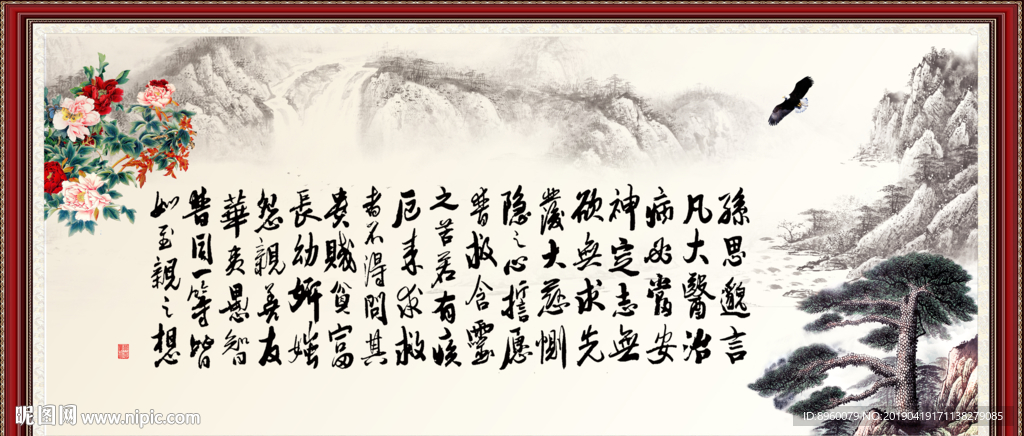 孫思邈言
凡大醫治
病必當安
神定志無
欲無求先
發大慈惻
隐之心誓愿
普救含靈
之苦若有疾
厄来求救
者不得問其
貴賤貧富
長幼妍媸
怨親善友
華夷愚智
普同一等皆
如至親之想
昵图网 www.nipic.com
ID:5960079 NO:20190419171138279085